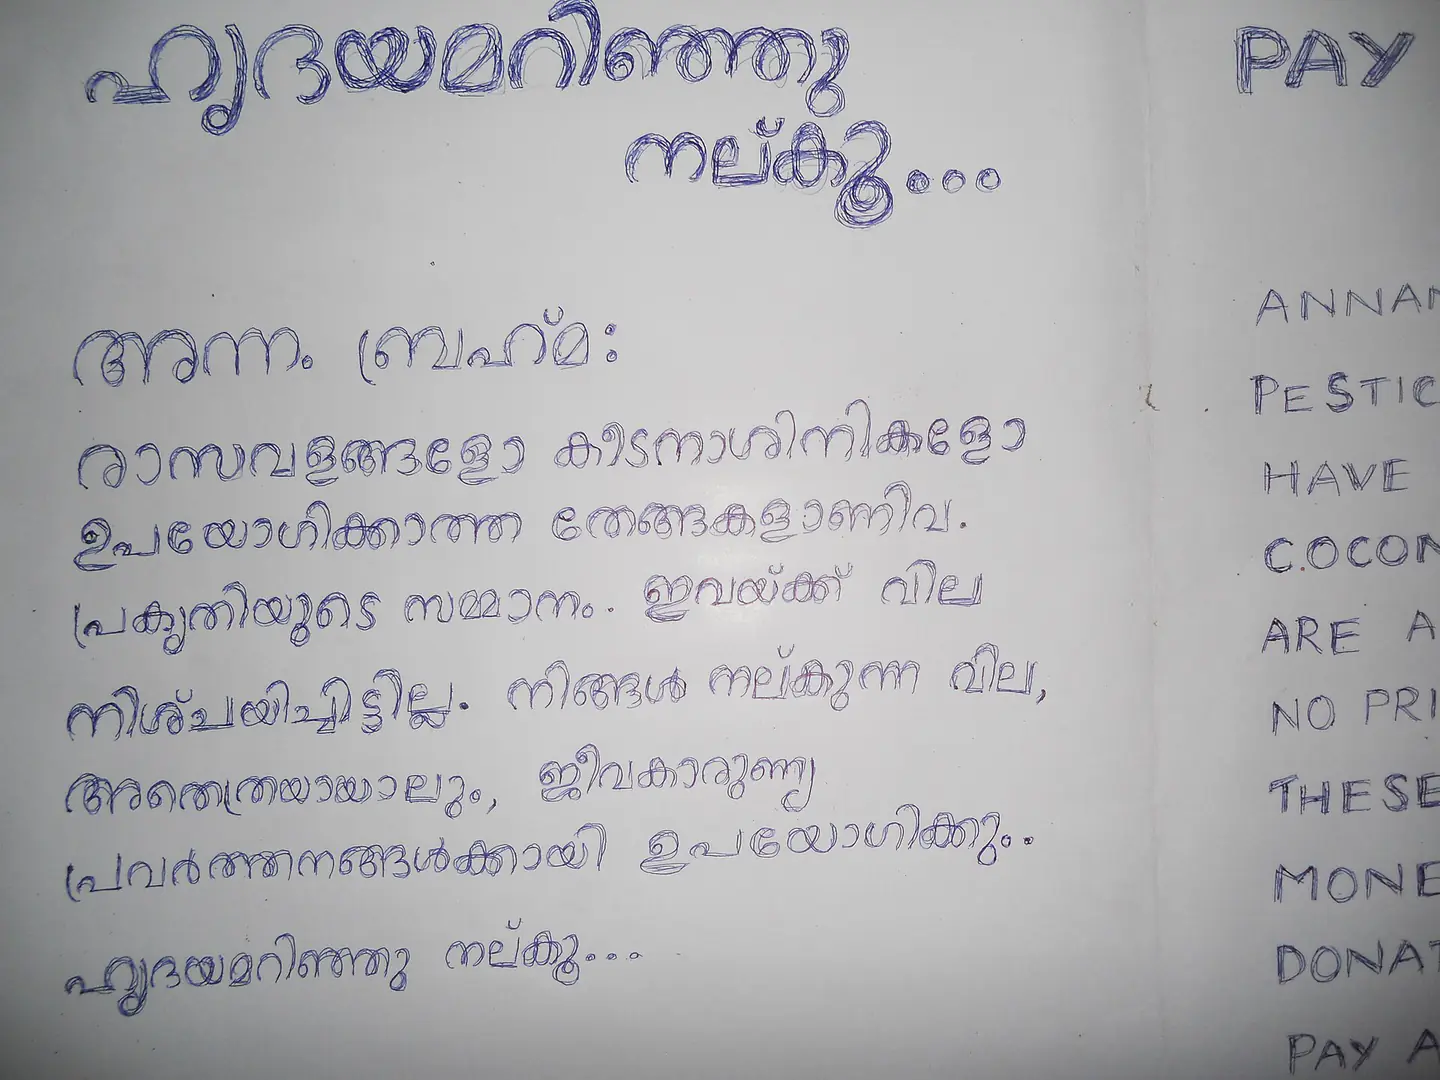 ഹൃദയമറിഞ്ഞു
നല്കൂ...
അന്നം ബ്രഹ്‌മ:
രാസവളങ്ങളോ കീടനാശിനികളോ
ഉപയോഗിക്കാത്ത തേങ്ങകളാണിവ.
പ്രകൃതിയുടെ സമ്മാനം. ഇവയ്ക്ക് വില
നിശ്ചയിച്ചിട്ടില്ല. നിങ്ങൾ നല്കുന്ന വില,
അതെത്രയായാലും, ജീവകാരുണ്യ
പ്രവർത്തനങ്ങൾക്കായി ഉപയോഗിക്കും..
ഹൃദയമറിഞ്ഞു നല്കൂ...
PAY
ANNAM
PESTIC
HAVE
COCON
ARE A
NO PRI
THESE
MONE
DONAT
PAY A